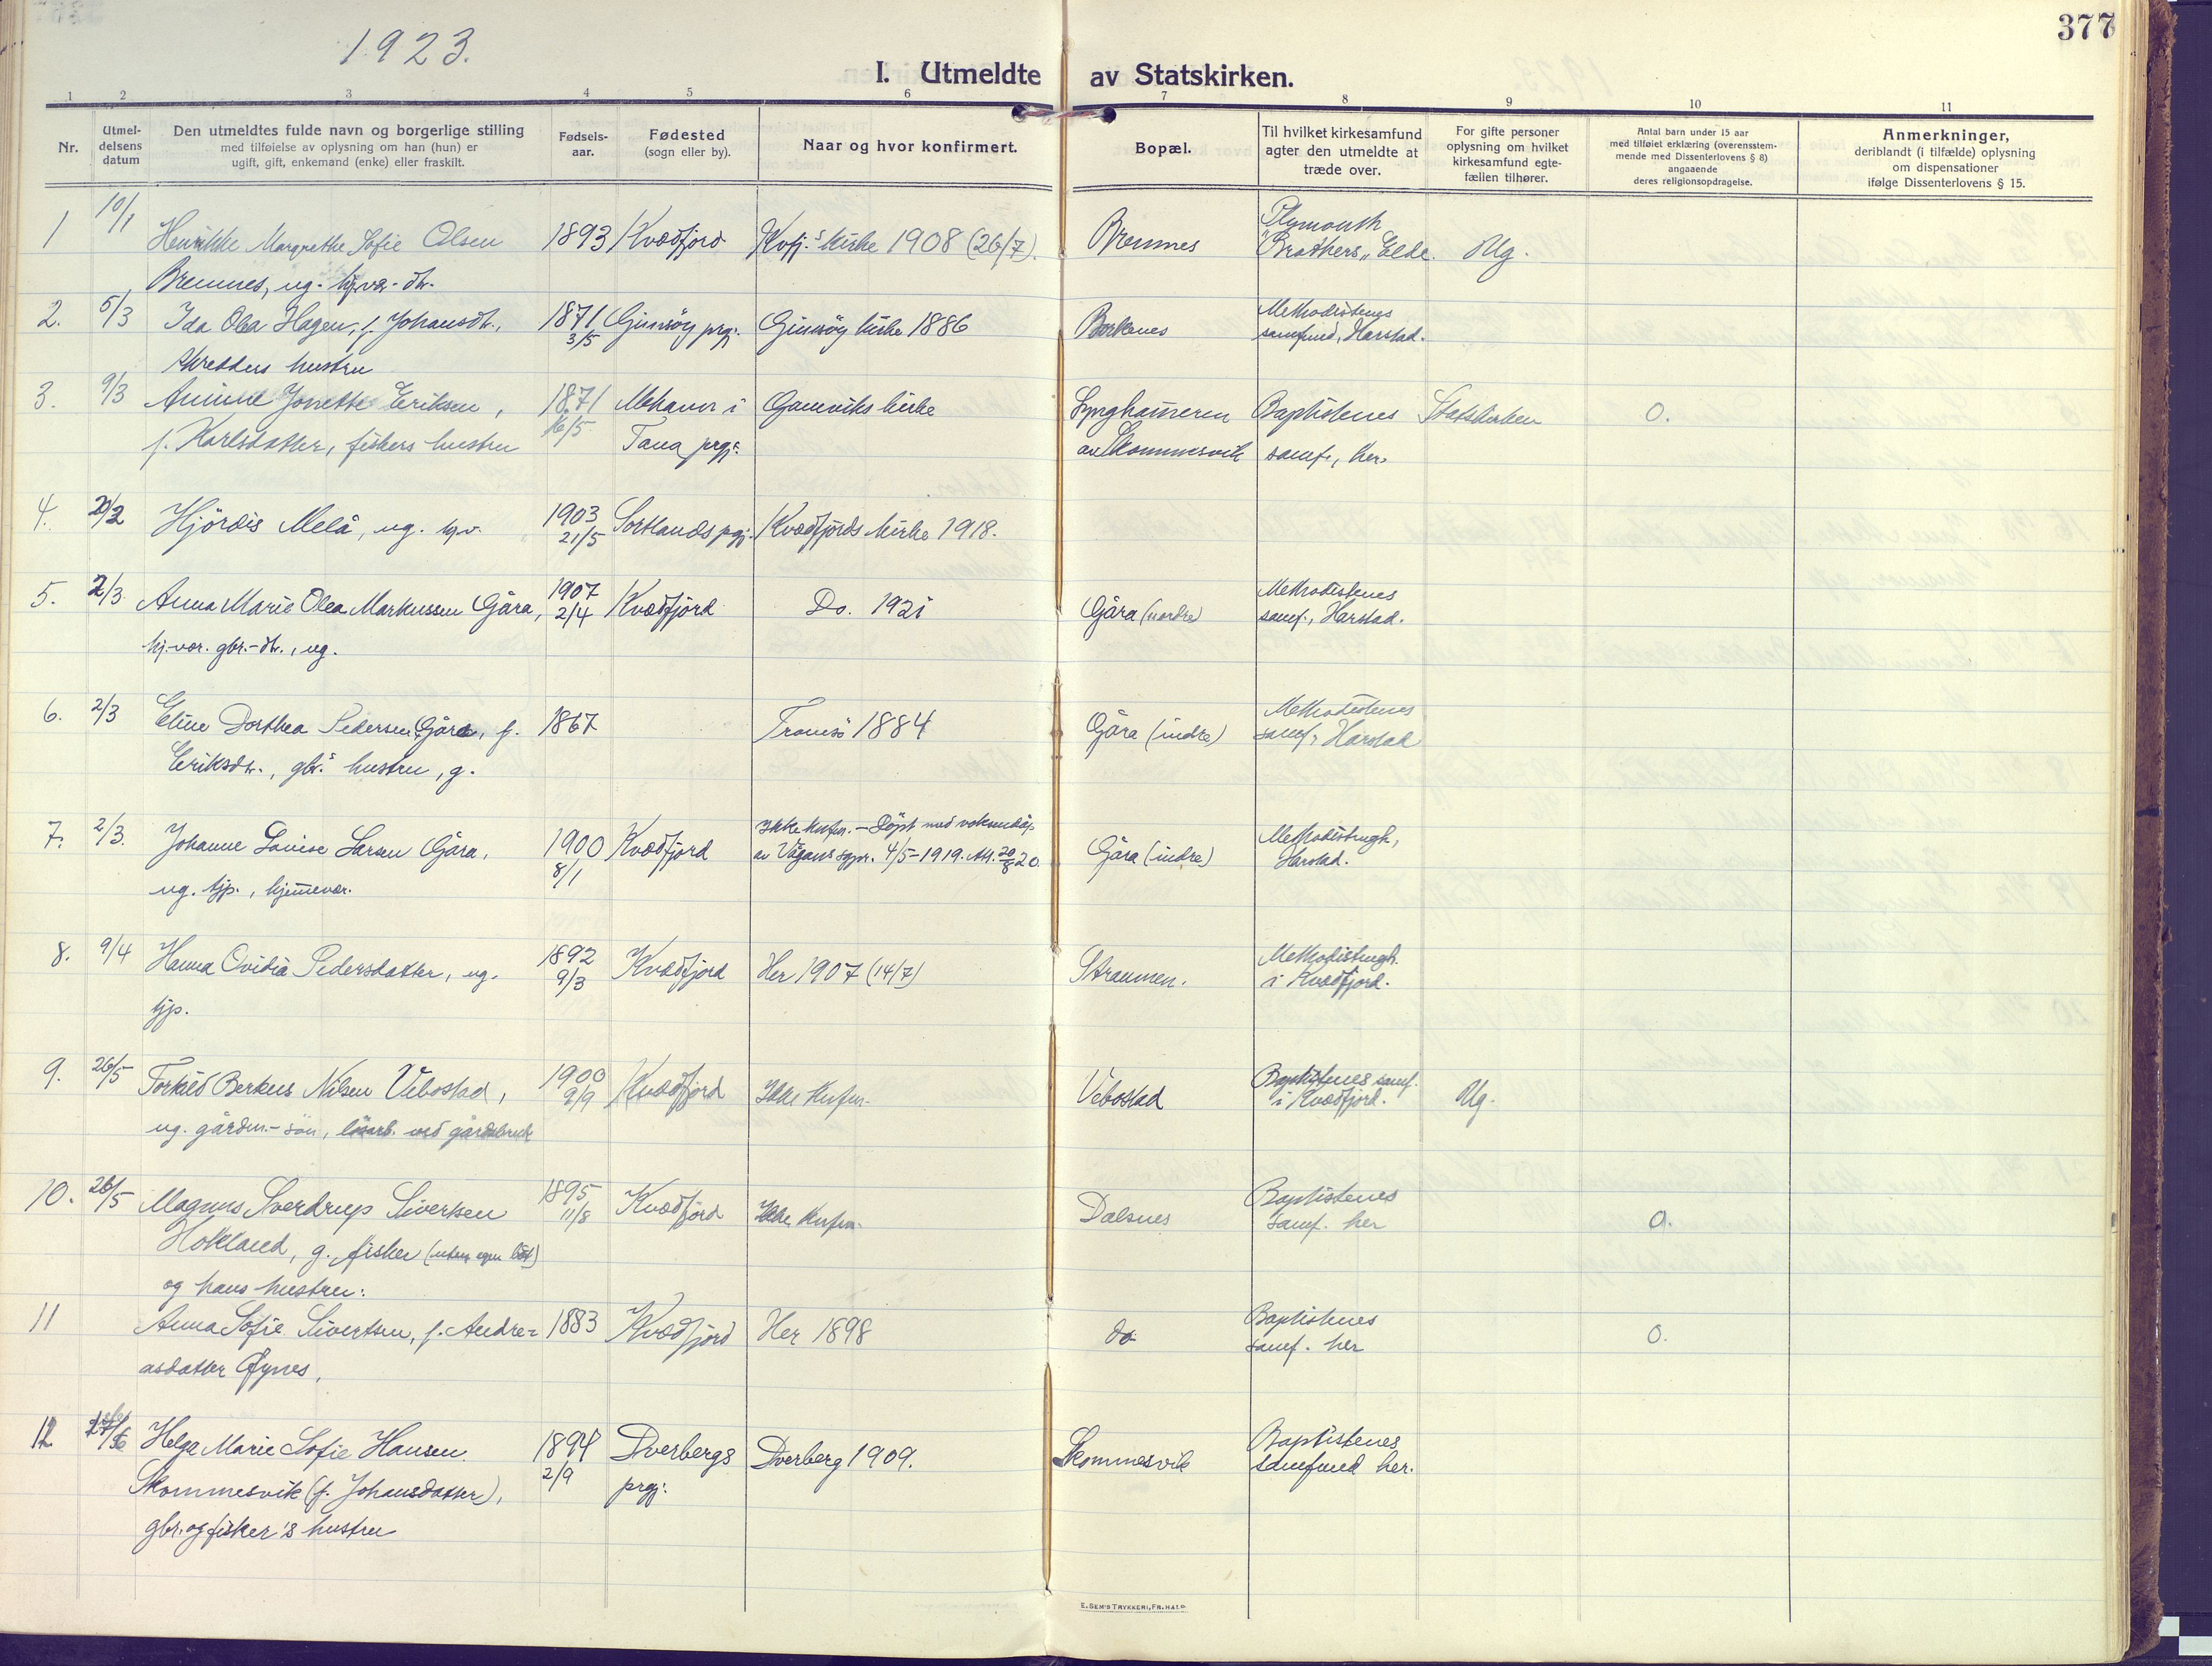 377
1923.
I. Utmeldte av Statskirken.
1 2 3 4 5 6 7 8 9 10 11
Nr.
Utmel-
delsens
datum
Den utmeldtes fulde navn og borgerlige stilling
med tilføielse av oplysning om han (hun) er
ugift, gift, enkemand (enke) eller fraskilt.
Fødsels-
aar.
Fødested
(sogn eller by).
Naar og hvor konfirmert.
Bopæl.
Til hvilket kirkesamfund
agter den utmeldte at
træde over.
For gifte personer
oplysning om hvilket
kirkesamfund egte-
fællen tilhører.
Antal barn under 15 aar
med tilføiet erklæring (overensstem-
mende med Dissenterlovens § 8)
angaaende
deres religionsopdragelse.
Anmerkninger,
deriblandt (i tilfælde) oplysning
om dispensationer
ifølge Dissenterlovens § 15.
1 10/1 Henrikke Margrethe Sofie Olsen 1893 Kvædfjord Kvfj.s kirke 1908 (26/7). Bremnes Plymouth
"Brothers" Elde. Ug.
Bremnes, ug. hj.vær. dtr.
2. 5/3 Ida Olea Hagen, f. Johansdtr., 1871 Gimsøy prgj. Gimsøy kirke 1886 Borkenes Methodistenes
3/5 samfund, Harstad.
skredders hustru
3. 9/3 Jonette Eriksen, 1871 Mehavn i Gamviks kirke Lynghaugen Baptistenes Statskirken 0.
f. Karlsdatter, fiskers hustru 16/5 Tana prgj. av Skommesvik samf., her.
4. 2/2 Hjördis Melå, ug. hjv. 1903 Sortlands prgj. Kvædfjords kirke 1918.
21/5
5. 2/3 Anna Marie Olea Markussen Gåra, 1907 Kvædfjord Do. 1921 Gåra (nordre) Methodistenes
2/4 samf., Harstad.
hj.vær. gbr.-dtr., ug.
6. 2/3 Eline Dorthea Pedersen Gåra, f. 1867 Tromsö 1884 Gåra (indre) Methodistenes
samf., Harstad
Eriksdtr., gbr.s hustru, g.
7. 2/3. Johanne Lovise Larsen Gåra, 1900 Kvædfjord Ikke knfm. – Döpt ved voksendåp
8/1 av Vågans sgpr. 4/5-1919. Att. 20/8 20. Gåra (indre) Methodistmgh.,
Harstad.
ug. tjp., hjemmevær.
8. 9/4 Hanna Ovidia Pedersdatter, ug. 1892 Kvædfjord Her 1907 (14/7) Straumen. Methodistmgh.
9/3 i Kvædfjord.
tjp.
9. 26/5 Torkild Berkus Nilsen Vebostad, 1900 Kvædfjord Ikke knfm. Vebostad Baptistenes samf.
9/9 i Kvædfjord. Ug.
ug. gårdm.-sön, lösarb. ved gårdsbruk
10. 26/5 Magnus Sverdrup Sivertsen 1895 Kvædfjord Ikke knfm. Dalsnes Baptistenes
11/8 samf. her 0.
Hokland, g. fisker (uten egen båt)
og hans hustru:
11 Anna Sofie Sivertsen, f. Andre= 1883 Kvædfjord Her 1898 do Baptistenes
samf. her 0.
asdatter Øynes,
12 Helga Marie Sofie Hansen 1894 Dverbergs Dverberg 1909. Skommesvik Baptistenes
2/9 prgj. samfund her.
Skommesvik (f. Johansdatter),
gbr. og fisker's hustru
E. SEM'S TRYKKERI, FR.HALD